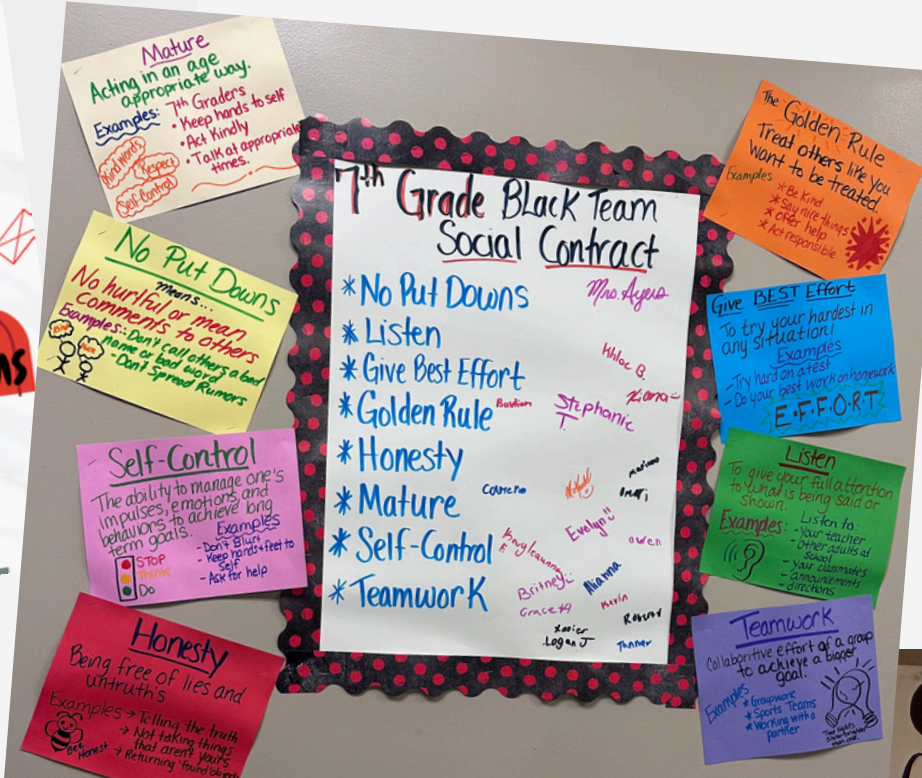 Mature
Acting in an age
appropriate way.
Examples:
7th Graders
• Keep hands to self
• Act Kindly
• Talk at appropriate
times.
Kind words
Respect
Self-Control
No Put Downs
means...
No hurtful or mean
comments to others
Examples: - Don't call others a bad
name or bad word
- Don't Spread Rumors
Kind
Nice
Self-Control
The ability to manage one's
impulses, emotions, and
behaviors to achieve long
term goals.
Examples
- Don't Blurt
- Keep hands + feet to
self
- Ask for help
STOP
Think
Do
Honesty
Being free of lies and
untruth's
Examples → Telling the truth
→ Not taking things
that aren't yours
→ Returning "found" objects
Bee
Honest
7th Grade Black Team
Social Contract
* No Put Downs
* Listen
* Give Best Effort
* Golden Rule
* Honesty
* Mature
* Self-Control
* Teamwork
Mrs. Ayers
Khloe B.
Kiana
Bastian
Stephanie
T.
Cameron
Mariano
Omari
Evelyn
owen
Britney
Alianna
Grace H
Kevin
Robert
Xavier
Logan J
Tanner
The Golden Rule
Treat others like you
want to be treated.
Examples
* Be Kind
* Say nice things
* offer help
* Act responsible
Give BEST Effort
To try your hardest in
any situation!
Examples
- Try hard on a test
- Do your best work on homework
E.F.F.O.R.T
Listen
To give your full attention
to what is being said or
shown.
Examples:
Listen to:
- your teacher
- other adults at
school
- your classmates
- announcements
- directions
Teamwork
Collaboritive effort of a group
to achieve a bigger
goal.
Examples
* Groupwork
* Sports Teams
* Working with a
partner
Two lights
shine brighter
than one